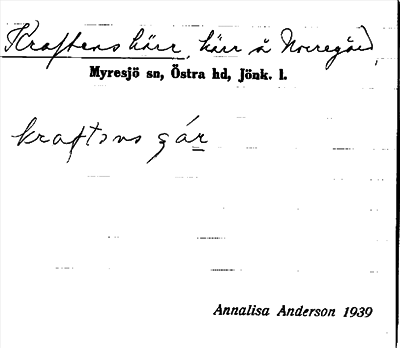 Kraftens kärr, kärr å Norregård,
Myresjö sn, Östra hd, Jönk. l.
kraftens
Annalisa Anderson 1939